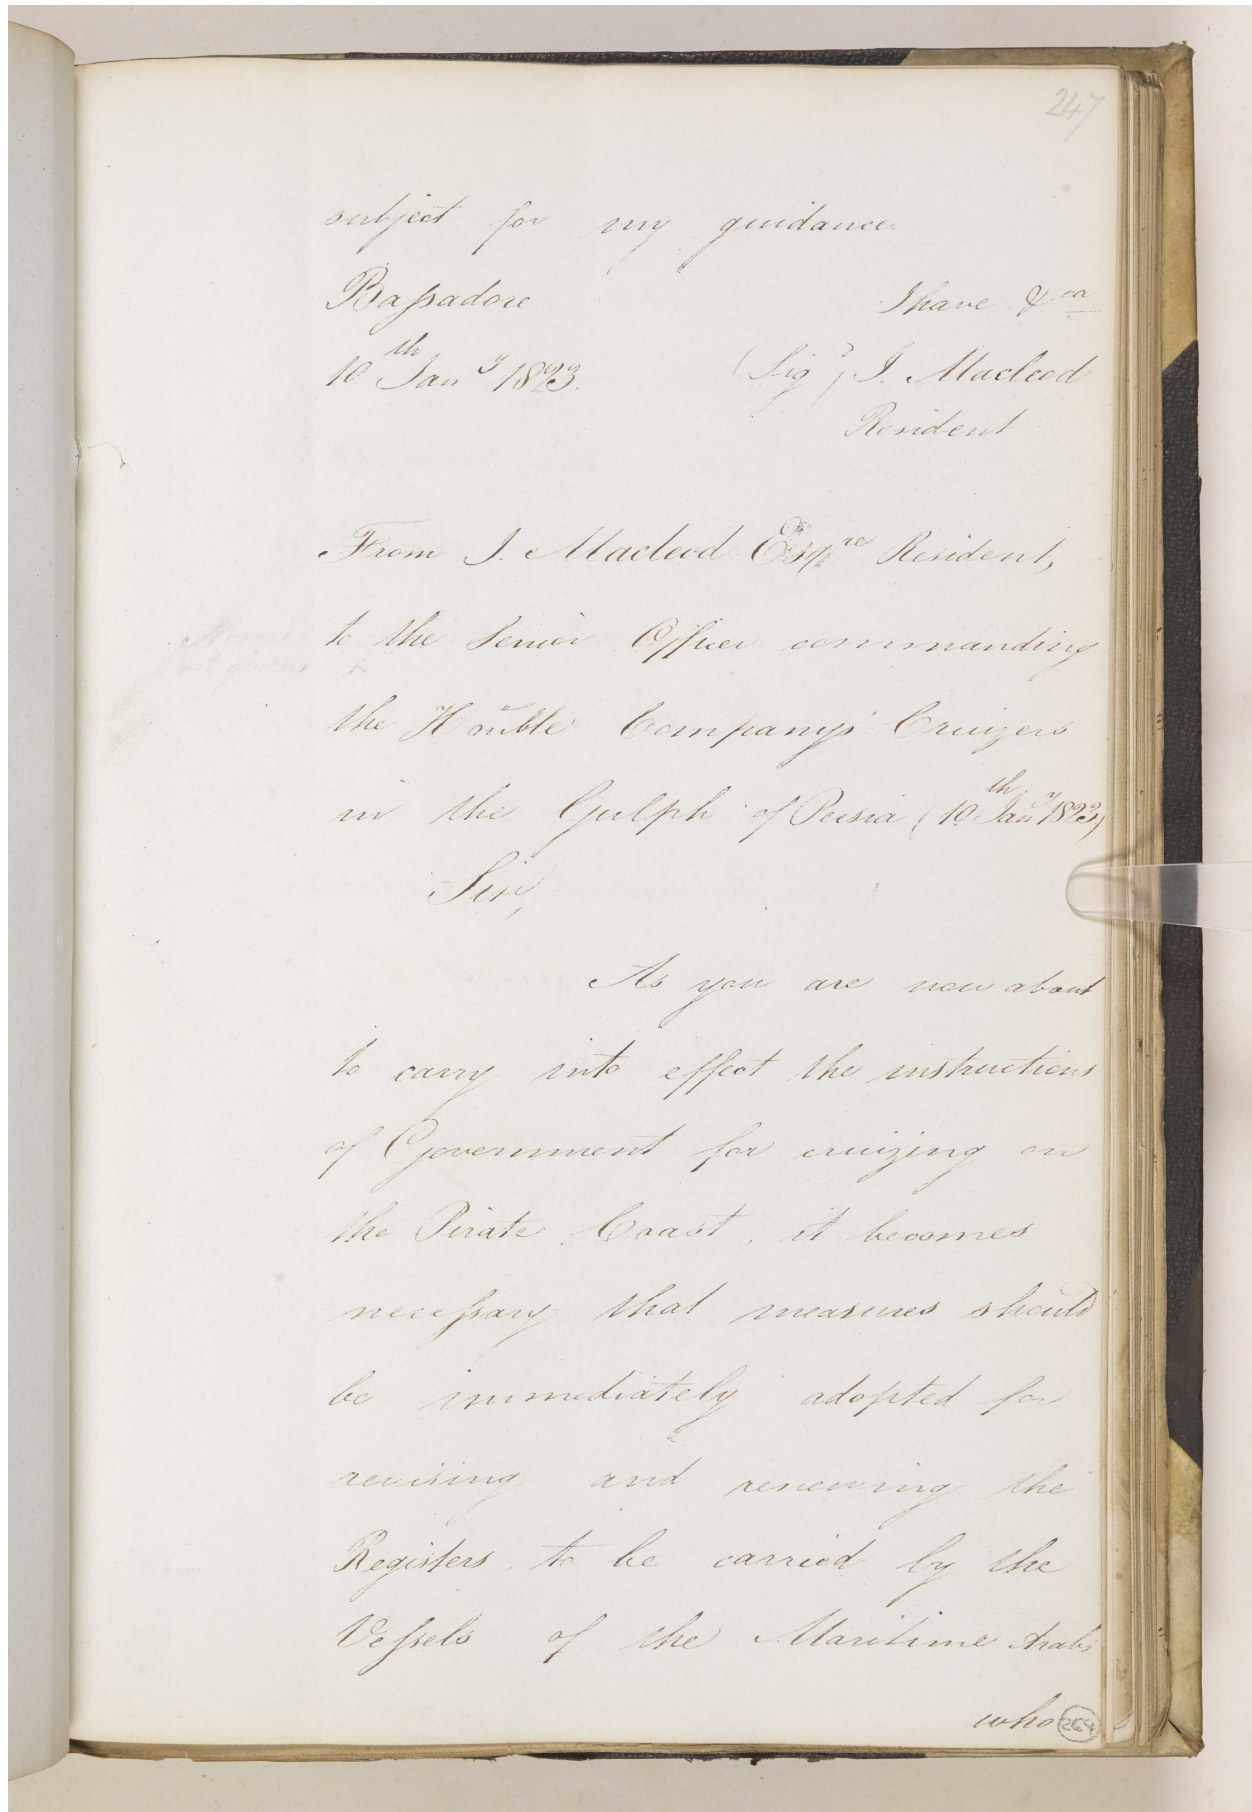 247
subject for my guidance.
Bassadore I have &ca
10th Jany 1823. (Sigd) J. Macleod
Resident
From J. Macleod Esqre Resident,
to the Senior Officer commanding
the Honble Company's Cruizers
in the Gulph of Persia (10th Jany 1823)
Sir,
As you are now about
to carry into effect the instructions
of Government for cruizing on
the Pirate Coast, it becomes
necessary that measures should
be immediately adopted for
revising and renewing the
Registers, to be carried by the
Vessels of the Maritime Arabs
who
264